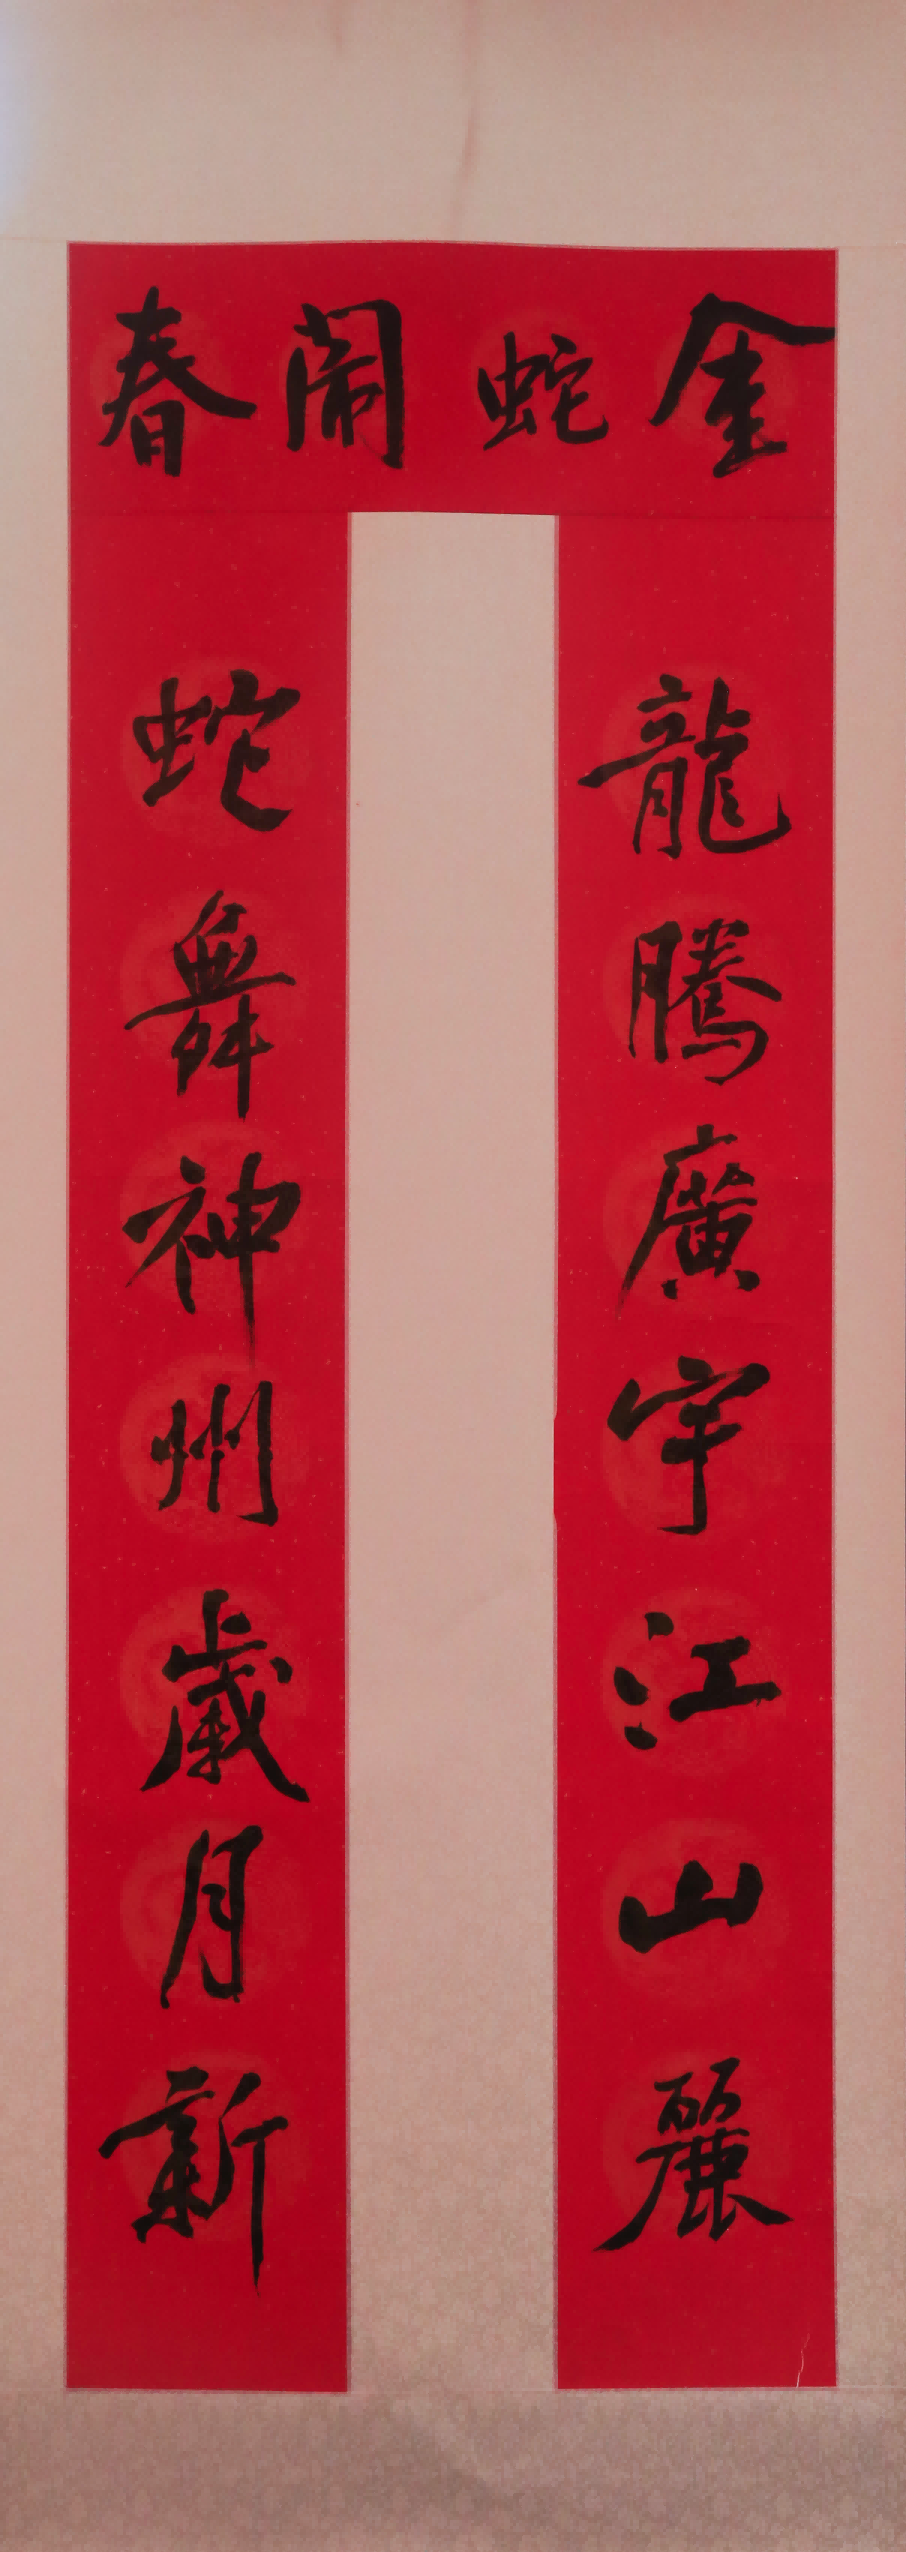 金蛇鬧春
龍騰廣宇江山麗
蛇舞神州歲月新